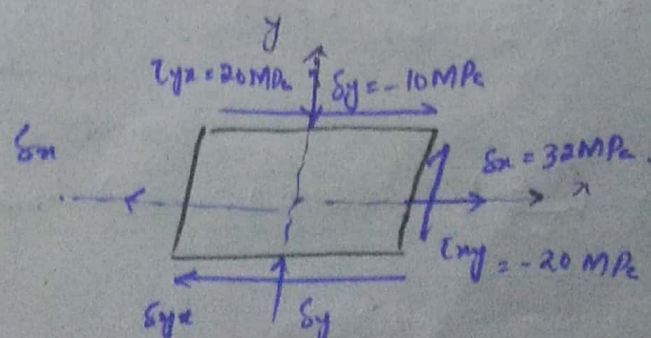 y
τyx = 20 MPa δy = -10 MPa
δx
δx = 32 MPa.
x
τxy = -20 MPa
δyx δy